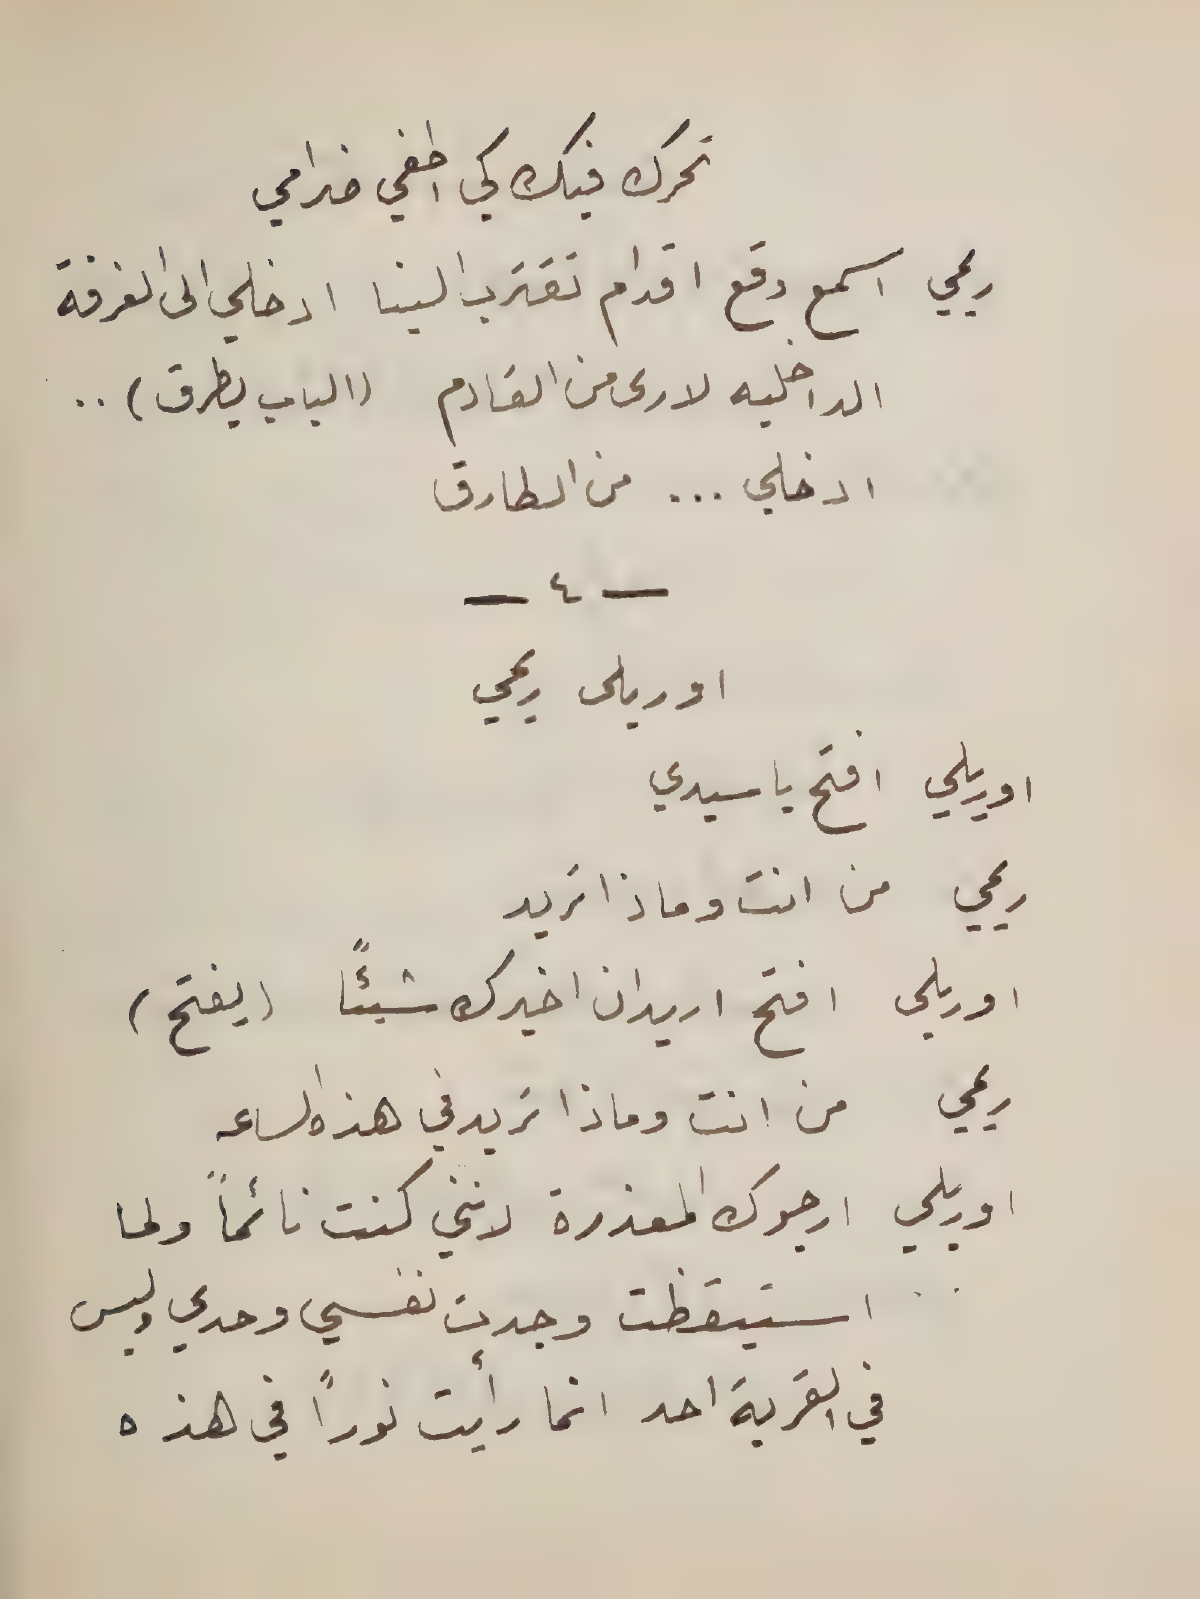 تحرك فيك كي اطفي ضرامي
ريمي اسمع وقع اقدام تقترب الينا ادخلي الى الغرفة
الداخليه لارى من القادم (الباب يطرق) ..
ادخلي ... من الطارق
— ٤ —
اوريلى ريمي
اوريلي افتح يا سيدي
ريمي من انت وماذا تريد
اوريلى افتح اريد ان اخبرك شيئًا (يفتح)
ريمي من انت وماذا تريد في هذه الساعه
اوريلي ارجوك المعذرة لانني كنت نائماً ولما
استيقظت وجدت نفسي وحدي وليس
في القرية احد انما رأيت نوراً في هذه